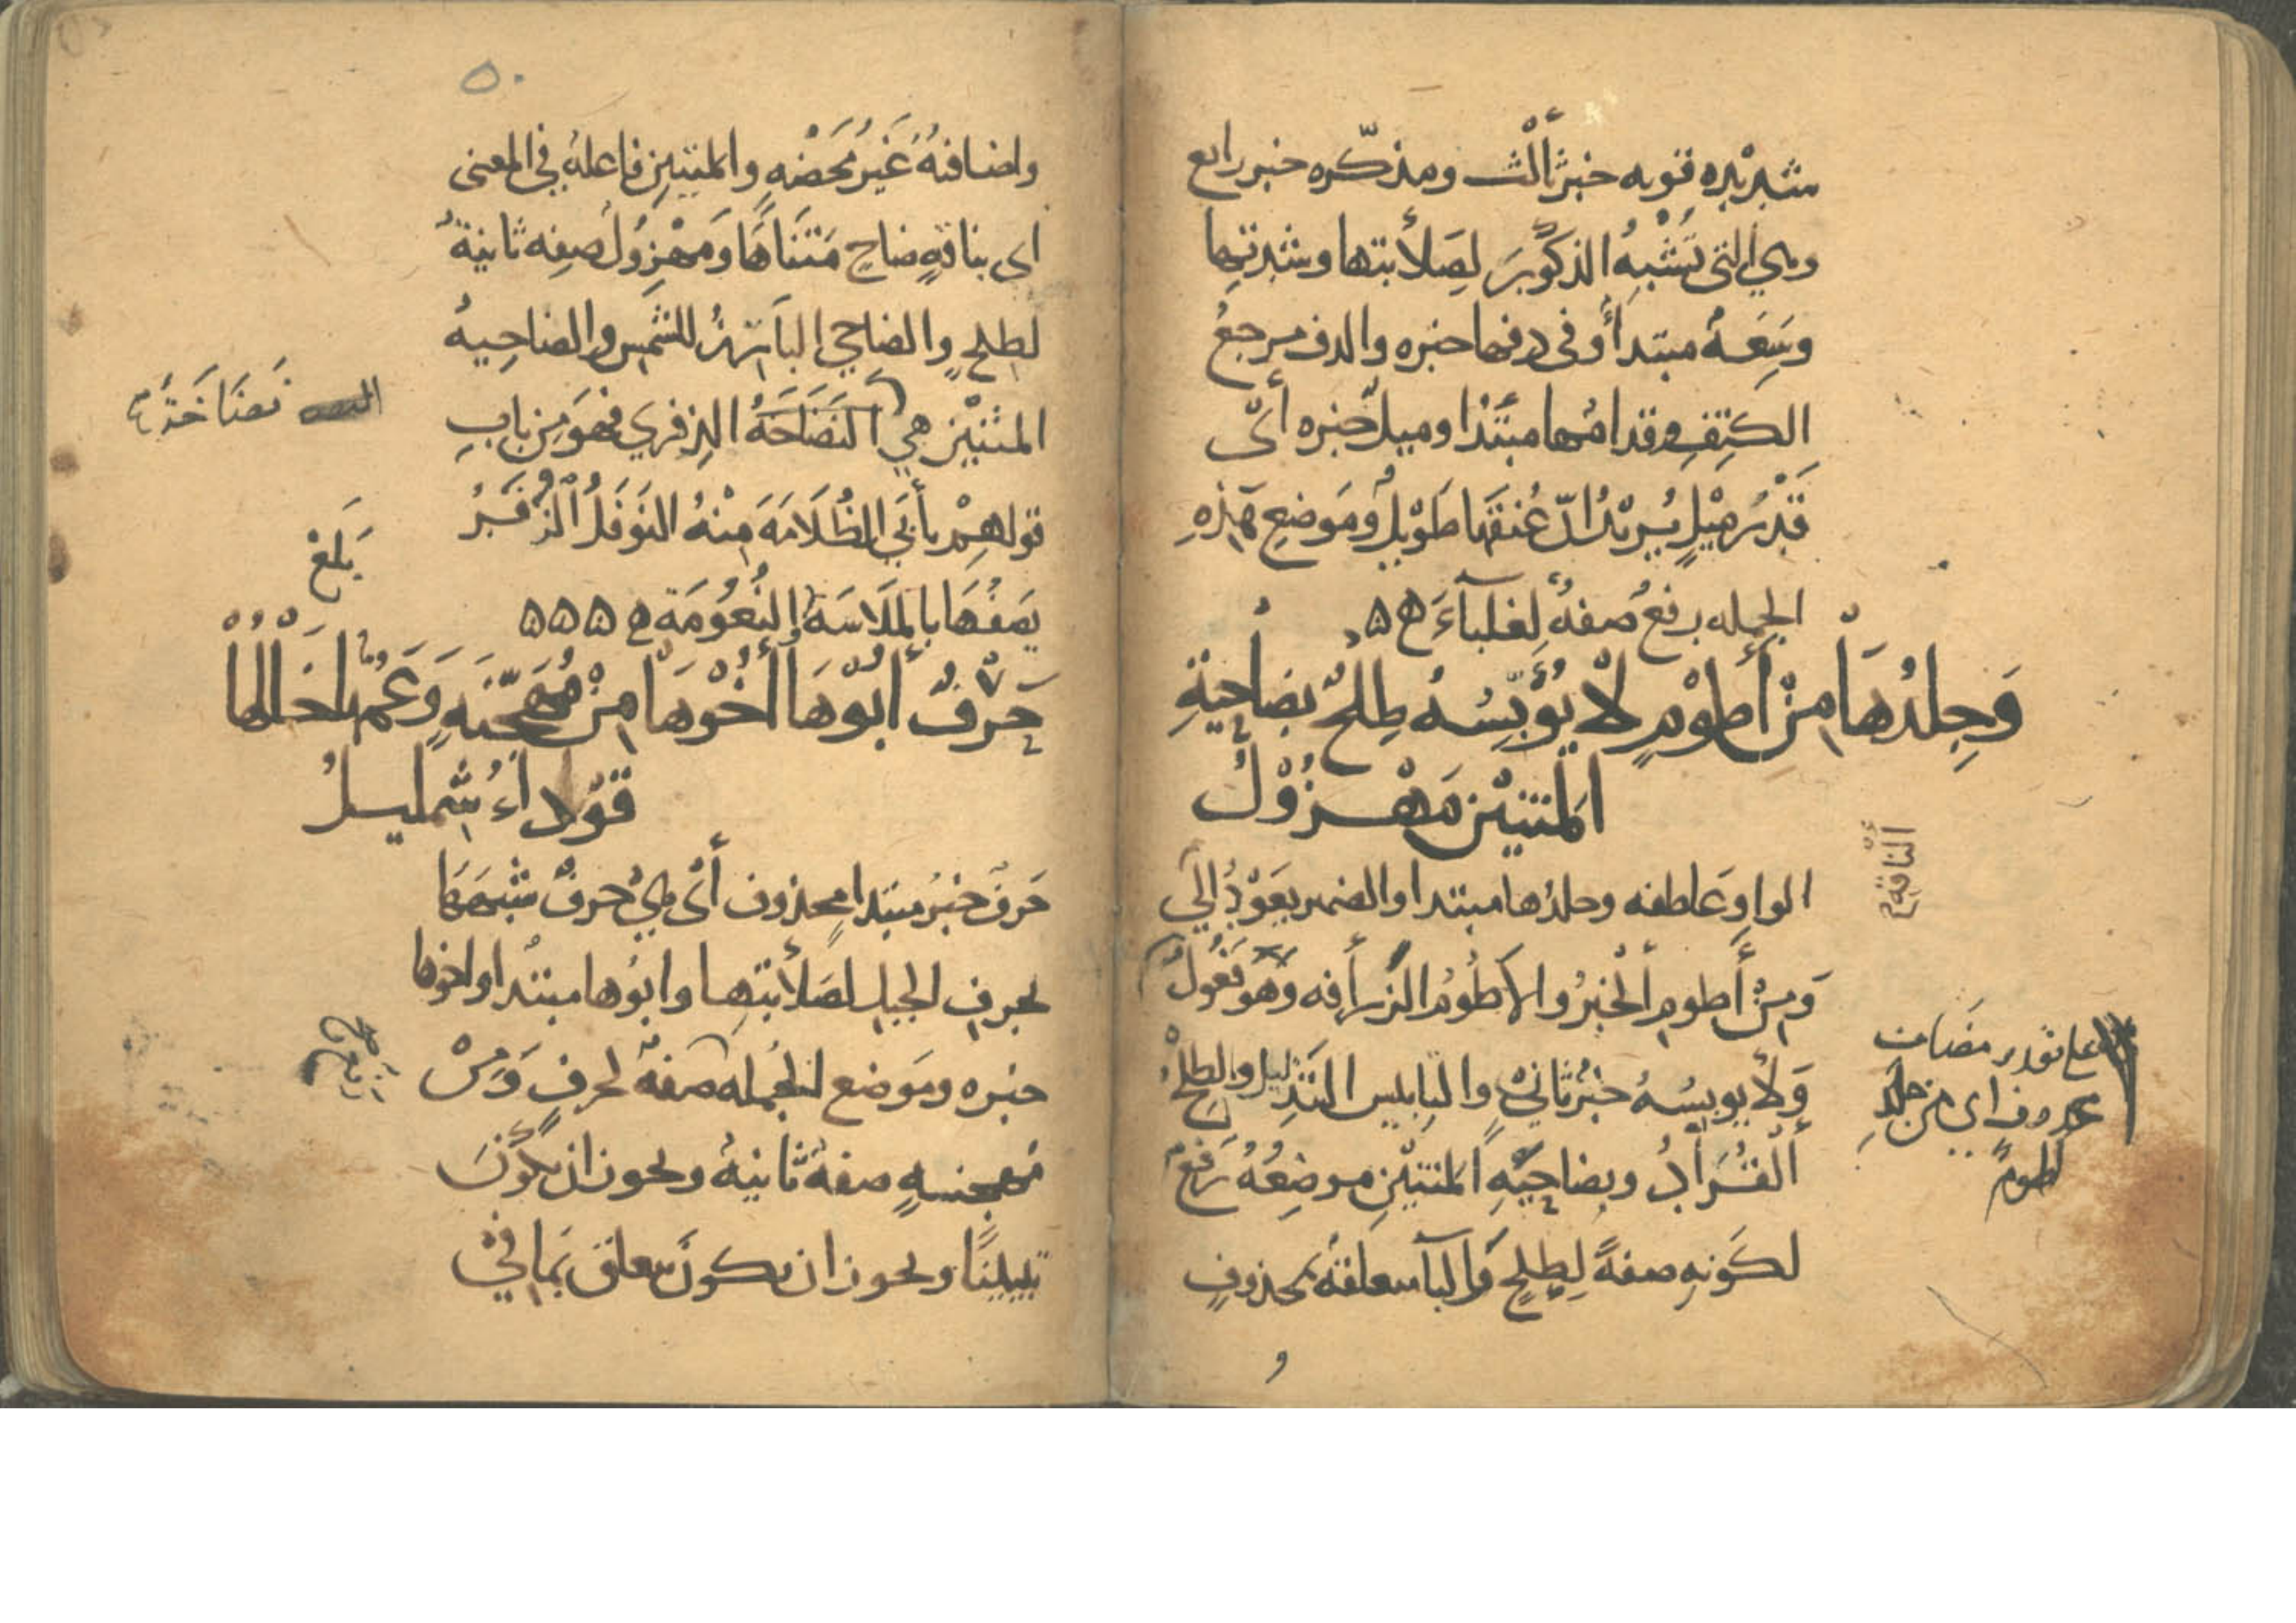 شديده قويه خبر ثالث ومذكره خبر رابع
وهي التي تشبه الذكور لصلابتها وشدتها
وسعة مبتدأ وفي دفها خبره والدف مرجع
الكتف وقدامها مبتدا وميل خبره أي
قدر ميل يريد ان عنقها طويل وموضع هذه
الجمله رفع صفة لغلباء
وَجِلدُهَا مِنْ أَطُوْمٍ لَا يُؤَيِّسُهُ طِلْحٌ بضاحِيَةِ
المَتنَيْنِ مَهْزُوْلُ
الواو عاطفه وجلدها مبتدا والضمير يعود الى
الناقة
ومن أطوم الخبر والاطوم الزرافه وهو فعول
على تقدير مضاف
محذوف اي من جلد
اطوم
ولا يويسه خبر ثاني والتابيس التذليل والطلح
القراد وبضاحية المتنين موضعه رفع
لكونه صفة لطلح والبا متعلقة بمحذوف
و
٥٠
واضافته غير محضه والمتنين فاعله في المعنى
اى بناقةٍ ضاحٍ متناها ومهزول صفه ثانية
لطلح والضاحي البارز للشمس والضاحية
المتنين هي النضاحة الذفري فهو من باب
نضاخة
قولهم يأبى الظلامة منه النوفل الزفر
يصفها بالملاسة والنعومة
بلغ
حَرْفٌ أَبُوْهَا أَخُوْهَا مِنْ مُهَجَّنَةٍ وَعَمُّهَا خَالُهَا
قَوْدَاءُ شِمْلِيلُ
حرف خبر مبتدا محذوف أى هي حرف شبهها
بحرف الجبل لصلابتها وابوها مبتدا واخوها
خبره وموضع الجمله صفة لحرف ومن
مهجنه صفة ثانية ويجوز ان يكون
تبيينا ويجوز ان يكون متعلق بما في